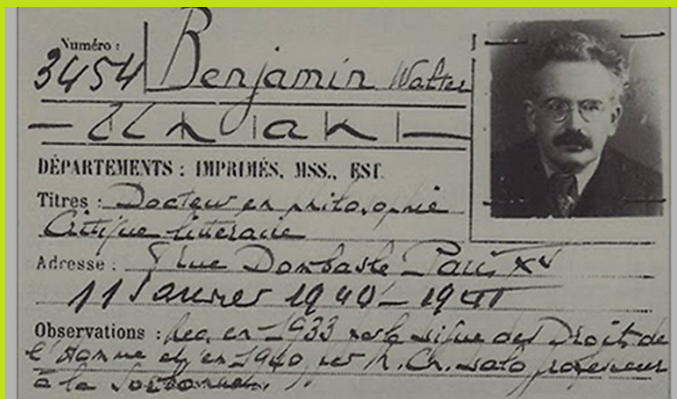 Numéro :
3454 Benjamin Walter
DÉPARTEMENTS : IMPRIMÉS, MSS., EST.
Titres : Docteur en philosophie
Critique littéraire
Adresse : rue Dombasle Paris XV
11 Janvier 1940 – 1941
Observations : Rec. en 1933 par la Ligue des Droits de
l'Homme et en 1940 par M. Ch. Lalo professeur
à la Sorbonne.